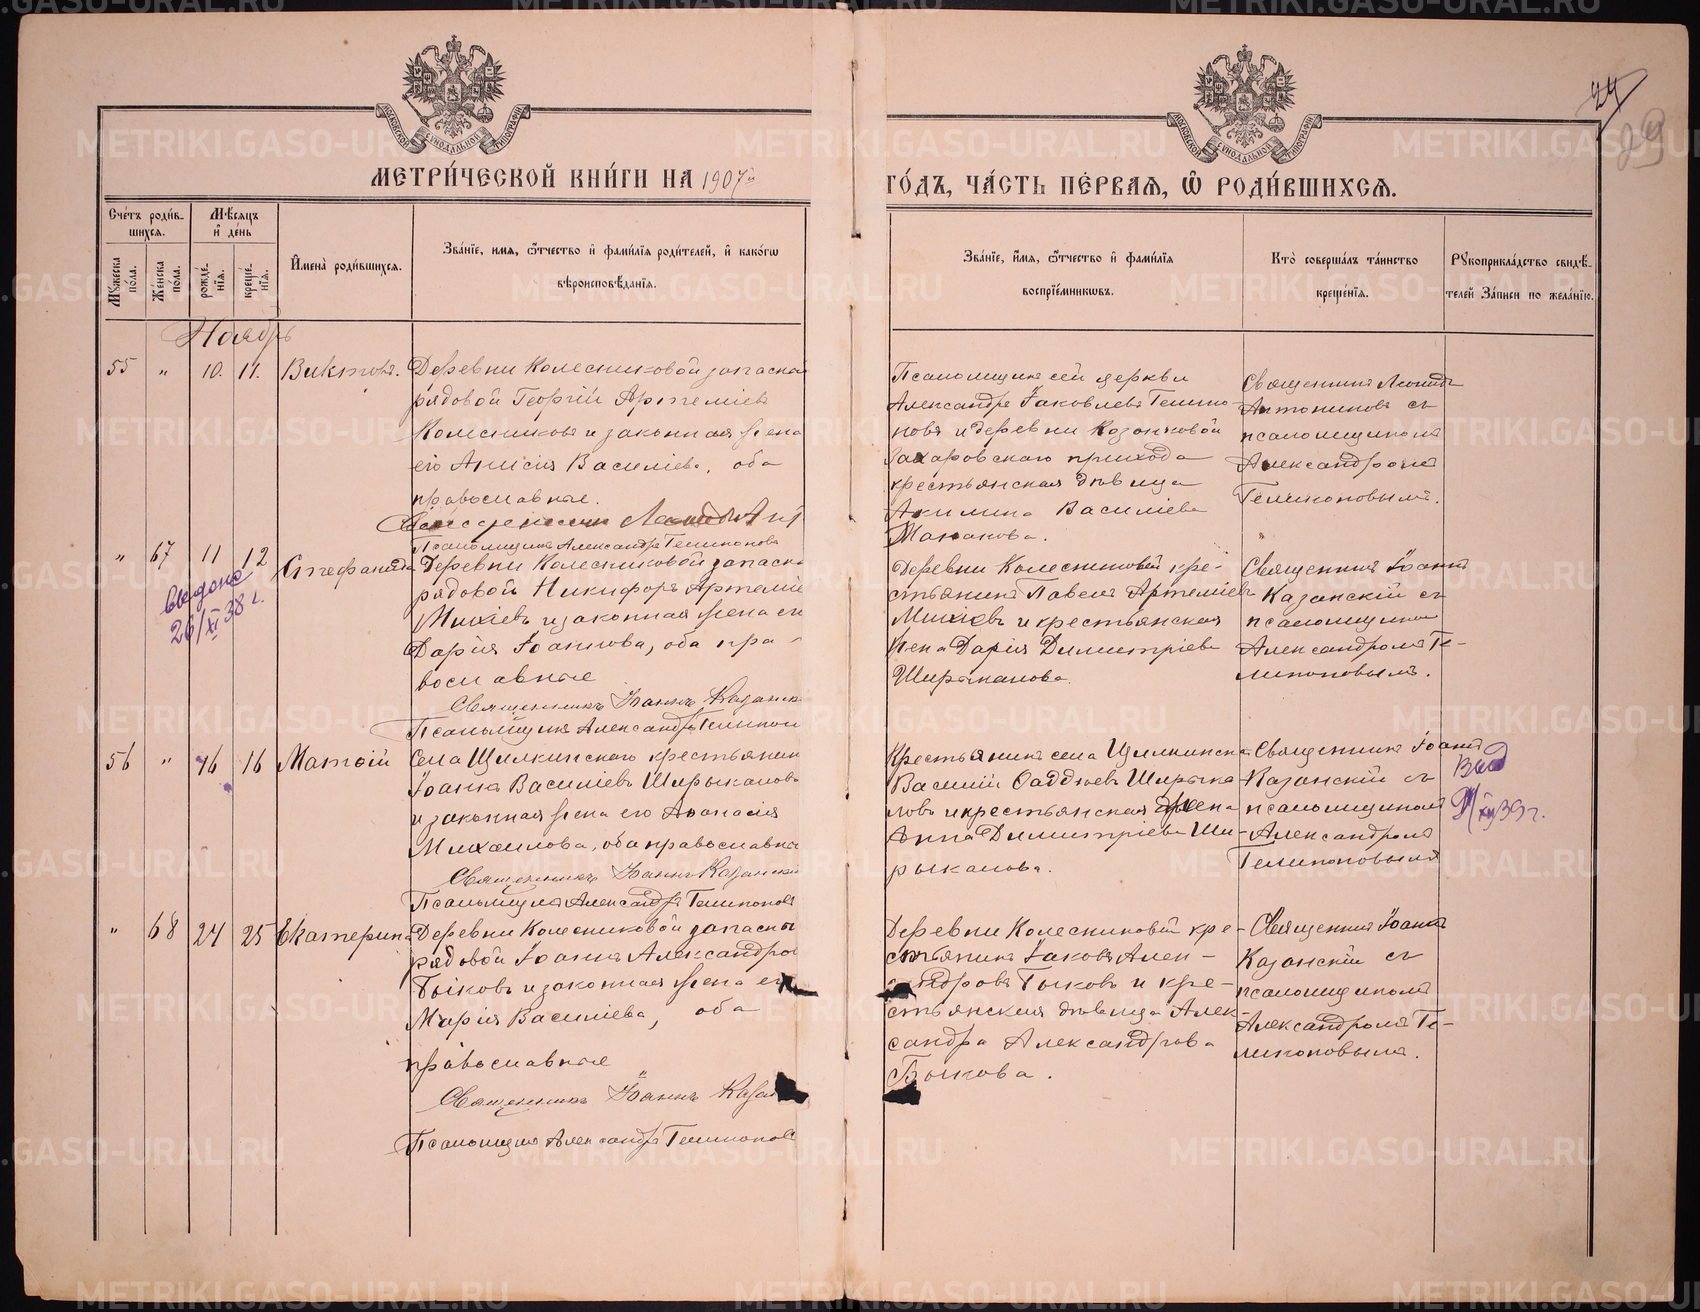 МЕТРИ́ЧЕСКОЙ КНИ́ГИ НА 1907й
ГО́ДЪ, ЧА́СТЬ ПЕ́РВАЯ, Ѿ РОДИ́ВШИХСЯ.
24
29
Сче́тъ роди́в-
шихся.
Мѣ́сяцъ
и де́нь
Му́жеска
по́ла.
Же́нска
по́ла.
рожде́-
нія.
креще́-
нія.
Имена̀ роди́вшихся.
Зва́ніе, имя, ѻтчество и фами́лія роди́телей, и како́гѡ
вѣроисповѣ́данія.
Зва́ніе, и́мя, ѻтчество и фами́лія
воспріе́мниковъ.
Кто̀ соверша́лъ та́инство
креще́нія.
Рукоприкла́дство свидѣ́-
телей За́писи по жела́нію.
Ноябрь
55 " 10. 11. Викторъ.
Деревни Колесниковой запасной
рядовой Георгій Артеміевъ
Колесниковъ и законная жена
его Анисія Василіева, оба
православные.
Псаломщикъ Александръ Гемиконовъ
Псаломщикъ сей церкви
Александръ Іаковлевъ
и деревни
прихода
крестьянская дѣвица
Акилина Василіева
Священникъ Леонидъ
Антониновъ съ
псаломщикомъ
Александромъ
" 67 11 12 Стефанида
Сведано
26/XI 38 г.
Деревни Колесниковой запасн
рядовой Никифоръ Артеміе
Михіевъ и законная жена его
Дарія Іоаннова, оба пра-
вославные
Священникъ Іоаннъ Казанск
Псаломщикъ Александръ
Деревни Колесниковой кре-
стьянинъ Павелъ Артеміевъ
Михіевъ и крестьянская
жена Дарія Димитріева
Ширыкалова.
Священникъ Іоаннъ
Казанскій съ
псаломщикомъ
Александромъ
56 " 16 16 Матѳій
Села Щелкинскаго крестьянин
Іоаннъ Василіевъ Ширыкаловъ
и законная жена его Аѳанасія
Михаилова, оба православные
Священникъ Іоаннъ Казанскій
Псаломщикъ Александръ
Крестьянинъ села
Василій Ѳаддѣевъ Ширыка-
ловъ и крестьянская жена
Анна Димитріева Ши-
рыкалова.
Священникъ Іоаннъ
Казанскій съ
псаломщикомъ
Александромъ
" 68 24 25 Екатерина
Деревни Колесниковой запасны
рядовой Іоаннъ Александров
Быковъ и законная жена его
Марія Василіева, оба
православные
Священникъ Іоаннъ Казан
Псаломщикъ Александръ
Деревни Колесниковой кре-
стьянинъ Іаковъ Алек-
сандровъ Быковъ и кре-
стьянская дѣвица Алек-
сандра Александрова
Быкова.
Священникъ Іоаннъ
Казанскій съ
псаломщикомъ
Александромъ
METRIKI.GASO-URAL.RU